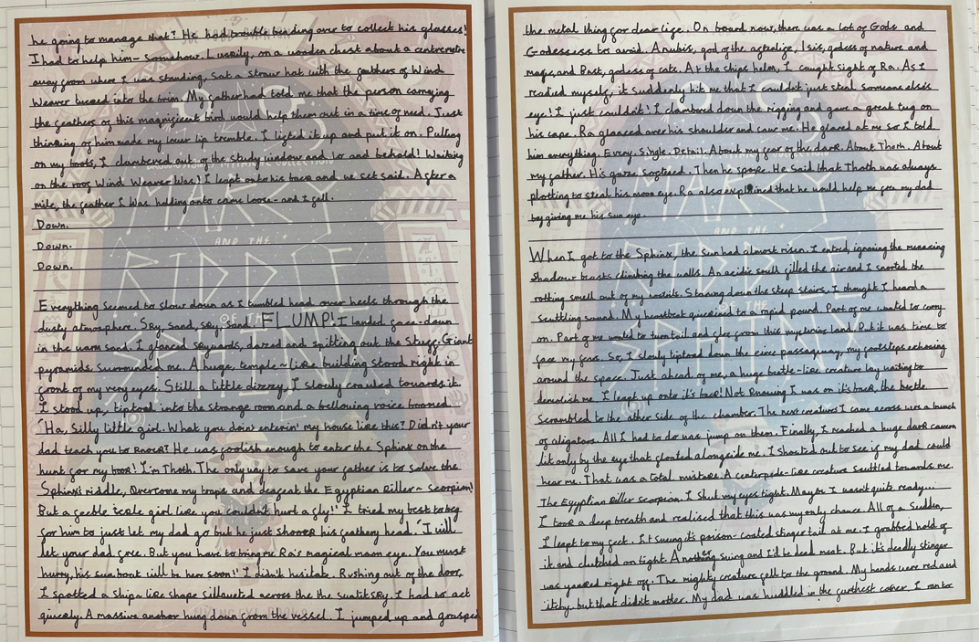 he going to manage that? He had trouble bending over to collect his glasses!
I had to help him - somehow. Luckily, on a wooden chest about a centremetre
away from where I was standing, sat a straw hat with the feathers of Wind
Weaver tucked into the brim. My father had told me that the person carrying
the feathers of this magnificent bird would help them out in a time of need. Just
thinking of him made my lower lip tremble. I lifted it up and put it on. Pulling
on my boots, I clambered out of the study window and lo and behold! Waiting
on the roof Wind Weaver Was! I leapt onto his back and we set said. After a
mile, the feather I Was holding onto came loose - and I fell.
Down.
Down.
Down.
Everything seemed to slow down as I tumbled head over heels through the
dusty atmosphere. Sky, Sand, sky, sand. FLUMP! I landed face-down
in the warm sand. I glanced skywards, dazed and spitting out the stuff. Giant
pyramids surrounded me. A huge, temple-like building stood right in
front of my very eyes. Still a little dizzy, I slowly crawled towards it.
I stood up, tiptoed into the strange room and a bellowing voice boomed
'Ha, Silly little girl. What you doin' enterin' my house like this? Didn't your
dad teach you to knock? He was foolish enough to enter the Sphinx on the
hunt for my book! I'm Thoth. The only way to save your father is to solve the
Sphinx's riddle, overcome my traps and defeat the Egyptian killer-scorpion!
But a feeble girl like you couldn't hurt a fly!" I tried my best to beg
for him to just let my dad go but he just shook his feathery head. "I will
let your dad free. But you have to bring me Ra's magical moon eye. You must
hurry, his sun boat will be here soon!" I didn't hesitate. Rushing out of the door,
I spotted a ship-like shape silhouted across the the sunlit sky. I had to act
quickly. A massive anchor hung down from the vessel. I jumped up and grasped
the metal thing for dear life. On board now, there was a lot of Gods and
Godessess to avoid. Anubis, god of the afterlife, Isis, godess of nature and
magic, and Bast, godess of cats. At the ships helm, I caught sight of Ra. As I
readied myself, it suddenly hit me that I couldn't just steal someone else's
eye! I just couldn't! I clambered down the rigging and gave a great tug on
his cape. Ra glanced over his shoulder and saw me. He glared at me so I told
him everything. Every. Single. Detail. About my fear of the dark. About Them. About
my father. His gaze softened. Then he spoke. He said that Thoth was always
plotting to steal his moon eye. Ra also explained that he would help me free my dad
by giving me his sun eye.
When I got to the Sphinx, the Sun had almost risen. I entred, ignoring the menacing
shadow beasts climbing the walls. An acidic smell filled the air and I snorted the
rotting smell out of my nostrils. Staring down the steep stairs, I thought I heard a
scuttling sound. My heartbeat quickened to a rapid pound. Part of me wanted to carry
on. Part of me wanted to turn tail and flee from this mysterious land. But it was time to
face my fears. So, I slowly tiptoed down the eirie passageway, my footsteps echoing
around the space. Just ahead of me, a huge beetle-like creature lay waiting to
demolish me. I leapt up onto it's back! Not knowing I was on it's back, the beetle
Scrambled to the other side of the chamber. The next creatures I came across were a bunch
of aligators. All I had to do was jump on them. Finally, I reached a huge dark cavern
lit only by the eye that floated alongside me. I shouted out to see if my dad could
hear me. That was a total mistake. A centipede-like creature scuttled towards me.
The Egyptian killer scorpion. I shut my eyes tight. Maybe I wasn't quite ready...
I took a deep breath and realised that this was my only chance. All of a Sudden,
I leapt to my feet. It swung its poison-coated stinger tail at me. I grabbed hold of
it and clutched on tight. Another swing and I'd be dead meat. But it's deadly stinger
was yanked right off. The mighty creature fell to the ground. My hands were red and
itchy, but that didn't matter. My dad was huddled in the furthest corner. I ran to